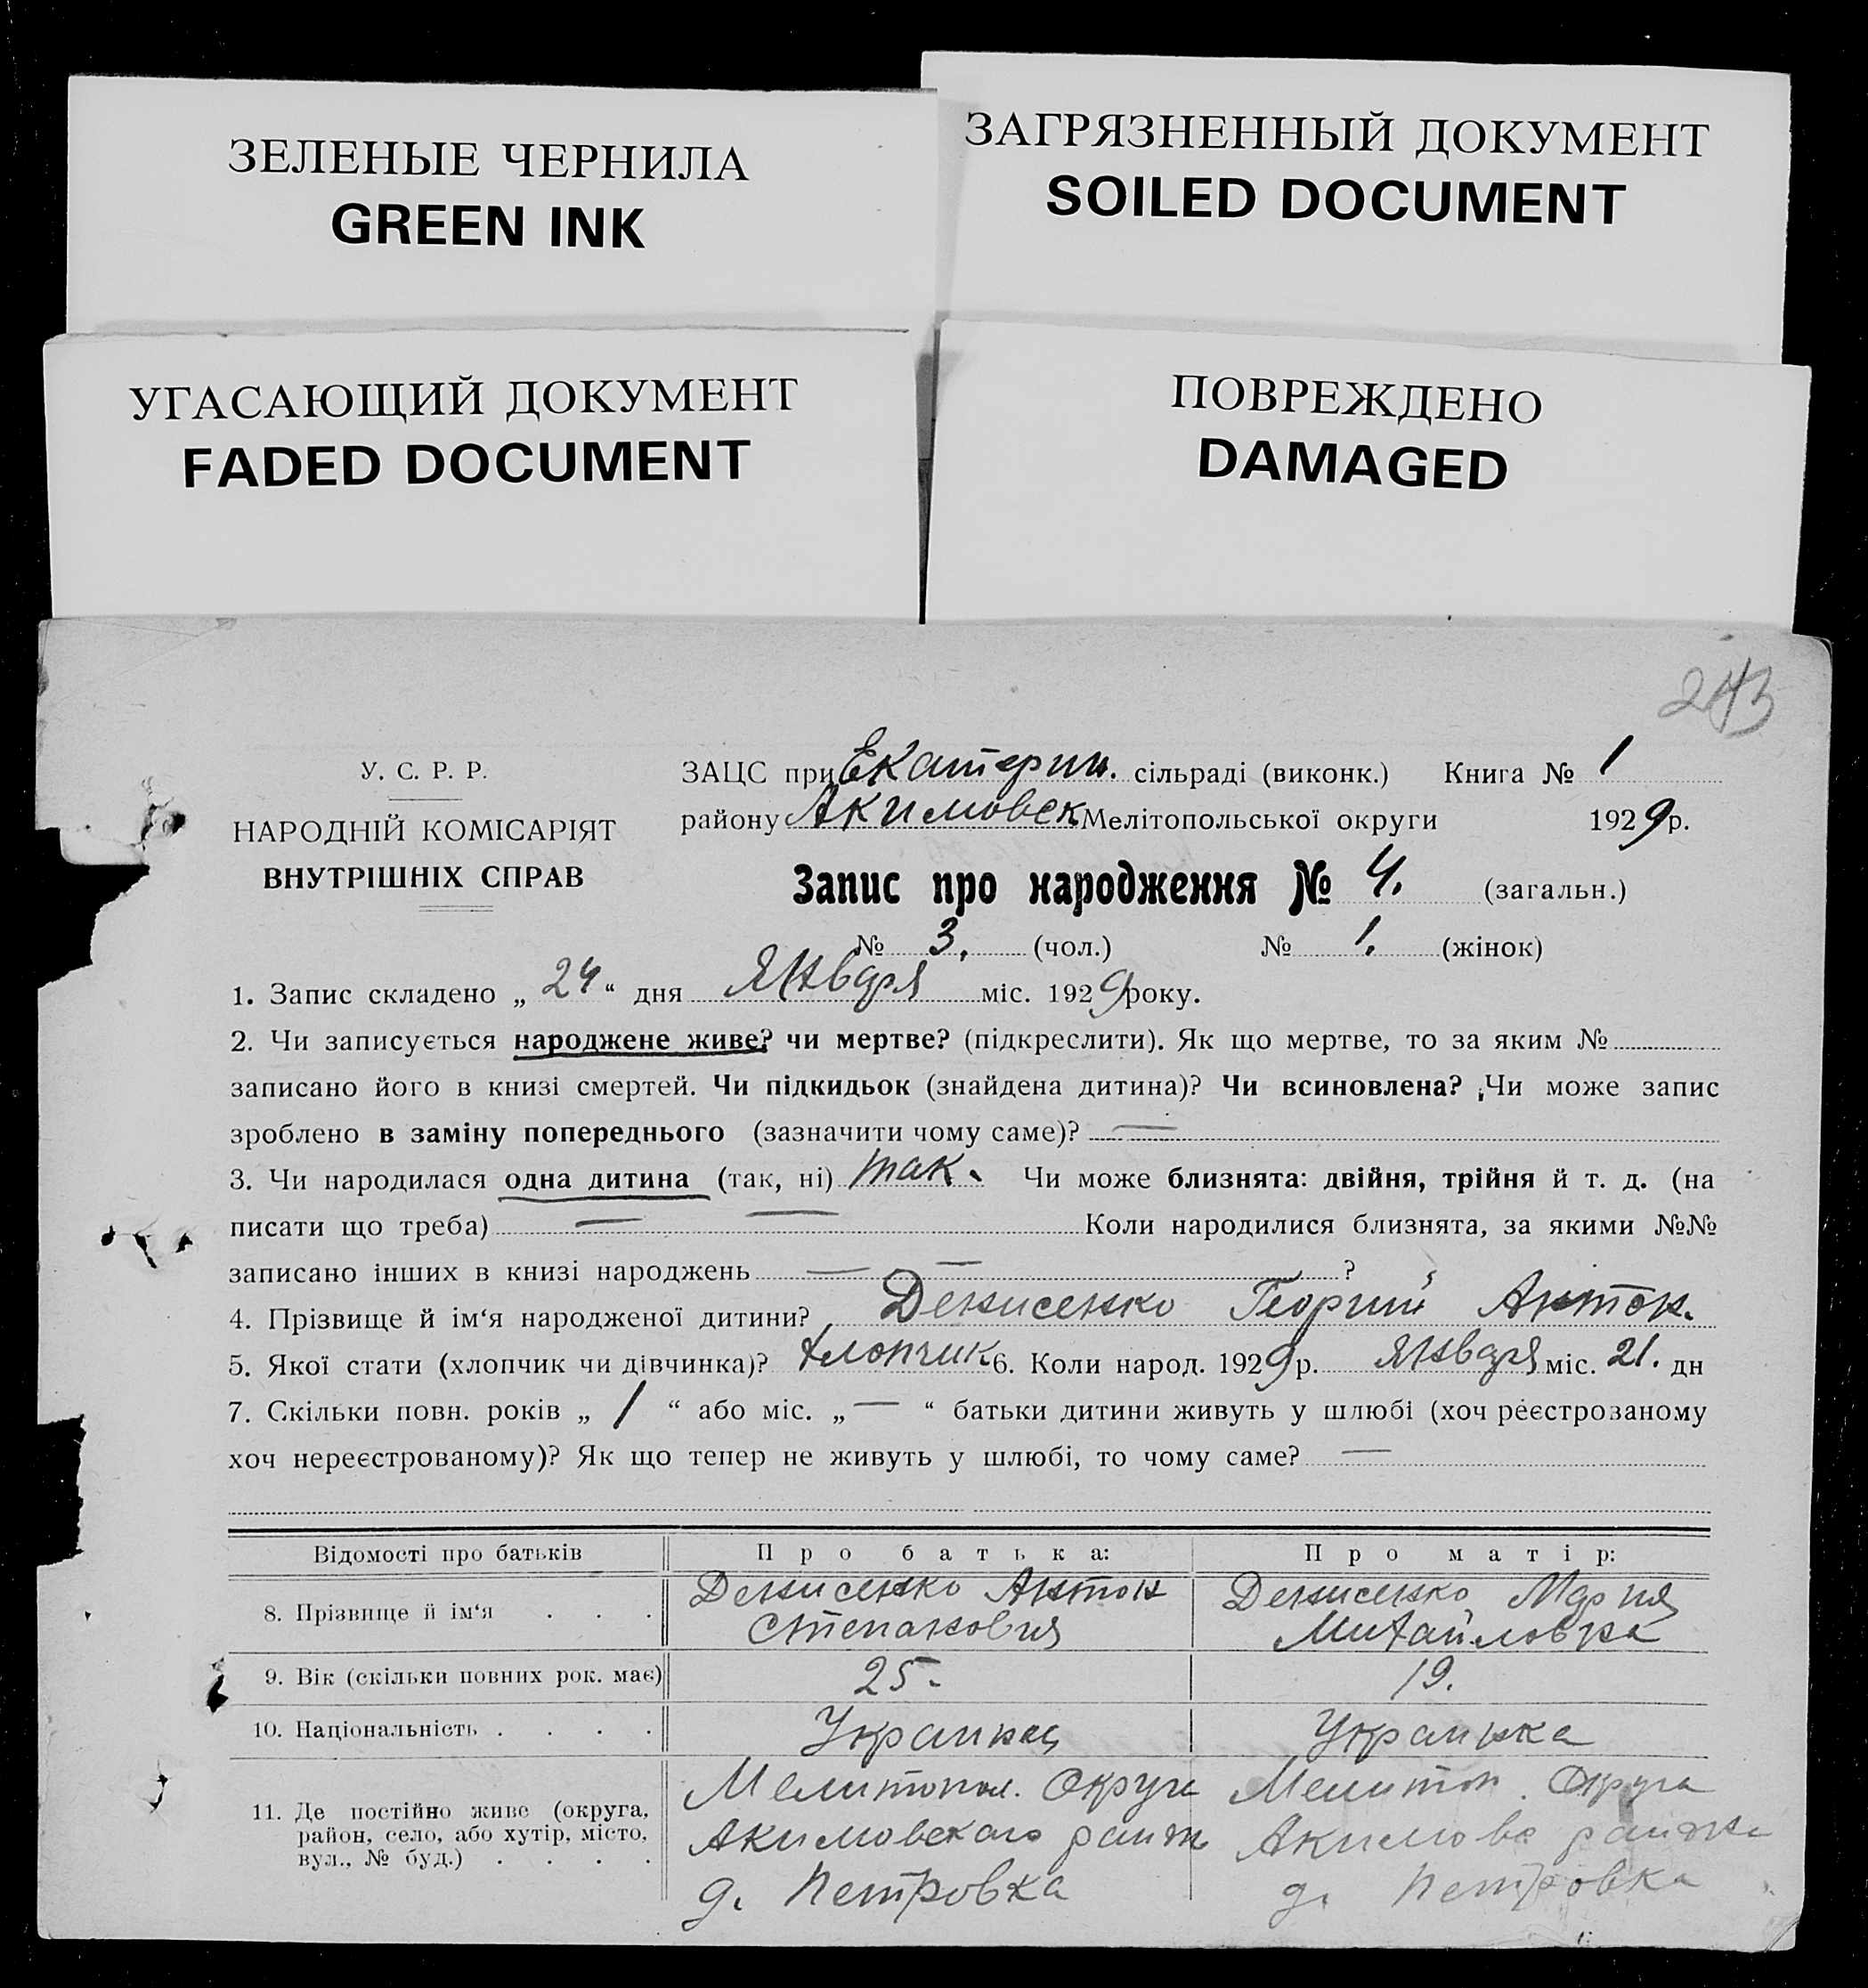 ЗЕЛЕНЫЕ ЧЕРНИЛА
GREEN INK
ЗАГРЯЗНЕННЫЙ ДОКУМЕНТ
SOILED DOCUMENT
УГАСАЮЩИЙ ДОКУМЕНТ
FADED DOCUMENT
ПОВРЕЖДЕНО
DAMAGED
243
У. С. Р. Р.
НАРОДНІЙ КОМІСАРІЯТ
ВНУТРІШНІХ СПРАВ
ЗАЦС при Екатерин. сільраді (виконк.) Книга № 1
району Акимовск Мелітопольської округи 1929 р.
Запис про народження № 4. (загальн.)
№ 3. (чол.) № 1. (жінок)
1. Запис складено „ 24 “ дня Января міс. 1929 року.
2. Чи записується народжене живе? чи мертве? (підкреслити). Як що мертве, то за яким №
записано його в книзі смертей. Чи підкидьок (знайдена дитина)? Чи всиновлена? Чи може запис
зроблено в заміну попереднього (зазначити чому саме)? —
3. Чи народилася одна дитина (так, ні) так. Чи може близнята: двійня, трійня й т. д. (на
писати що треба) — — Коли народилися близнята, за якими №№
записано інших в книзі народжень — — ?
4. Прізвище й ім‘я народженої дитини? Денисенко Георгий Антон.
5. Якої стати (хлопчик чи дівчинка)? Хлопчик 6. Коли народ. 1929 р. Января міс. 21. дн
7. Скільки повн. років „ 1 “ або міс. „ — “ батьки дитини живуть у шлюбі (хоч реєстрозаному
хоч нереєстрованому)? Як що тепер не живуть у шлюбі, то чому саме? —
Відомості про батьків Про батька: Про матір:
8. Прізвище й ім‘я . . . Денисенко Антон Денисенко Мария
Степанович Михайловна
9. Вік (скільки повних рок. має) 25. 19.
10. Національність . . . . Украинец Украинка
11. Де постійно живе (округа, район, село, або хутір, місто, вул., № буд.) . . . .
Мелитопол. Округа
Акимовскаго район
д. Петровка
Мелитоп. Округа
Акимовс района
д. Петровка